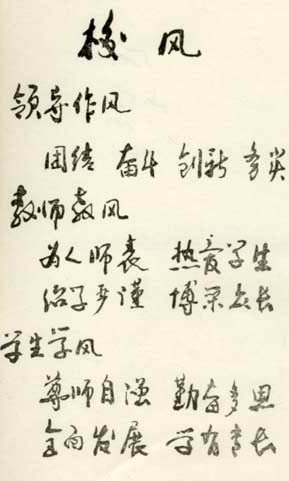 校风
领导作风
团结 奋斗 创新 争尖
教师教风
为人师表 热爱学生
治学严谨 博采众长
学生学风
尊师自强 勤奋多思
全面发展 学有专长